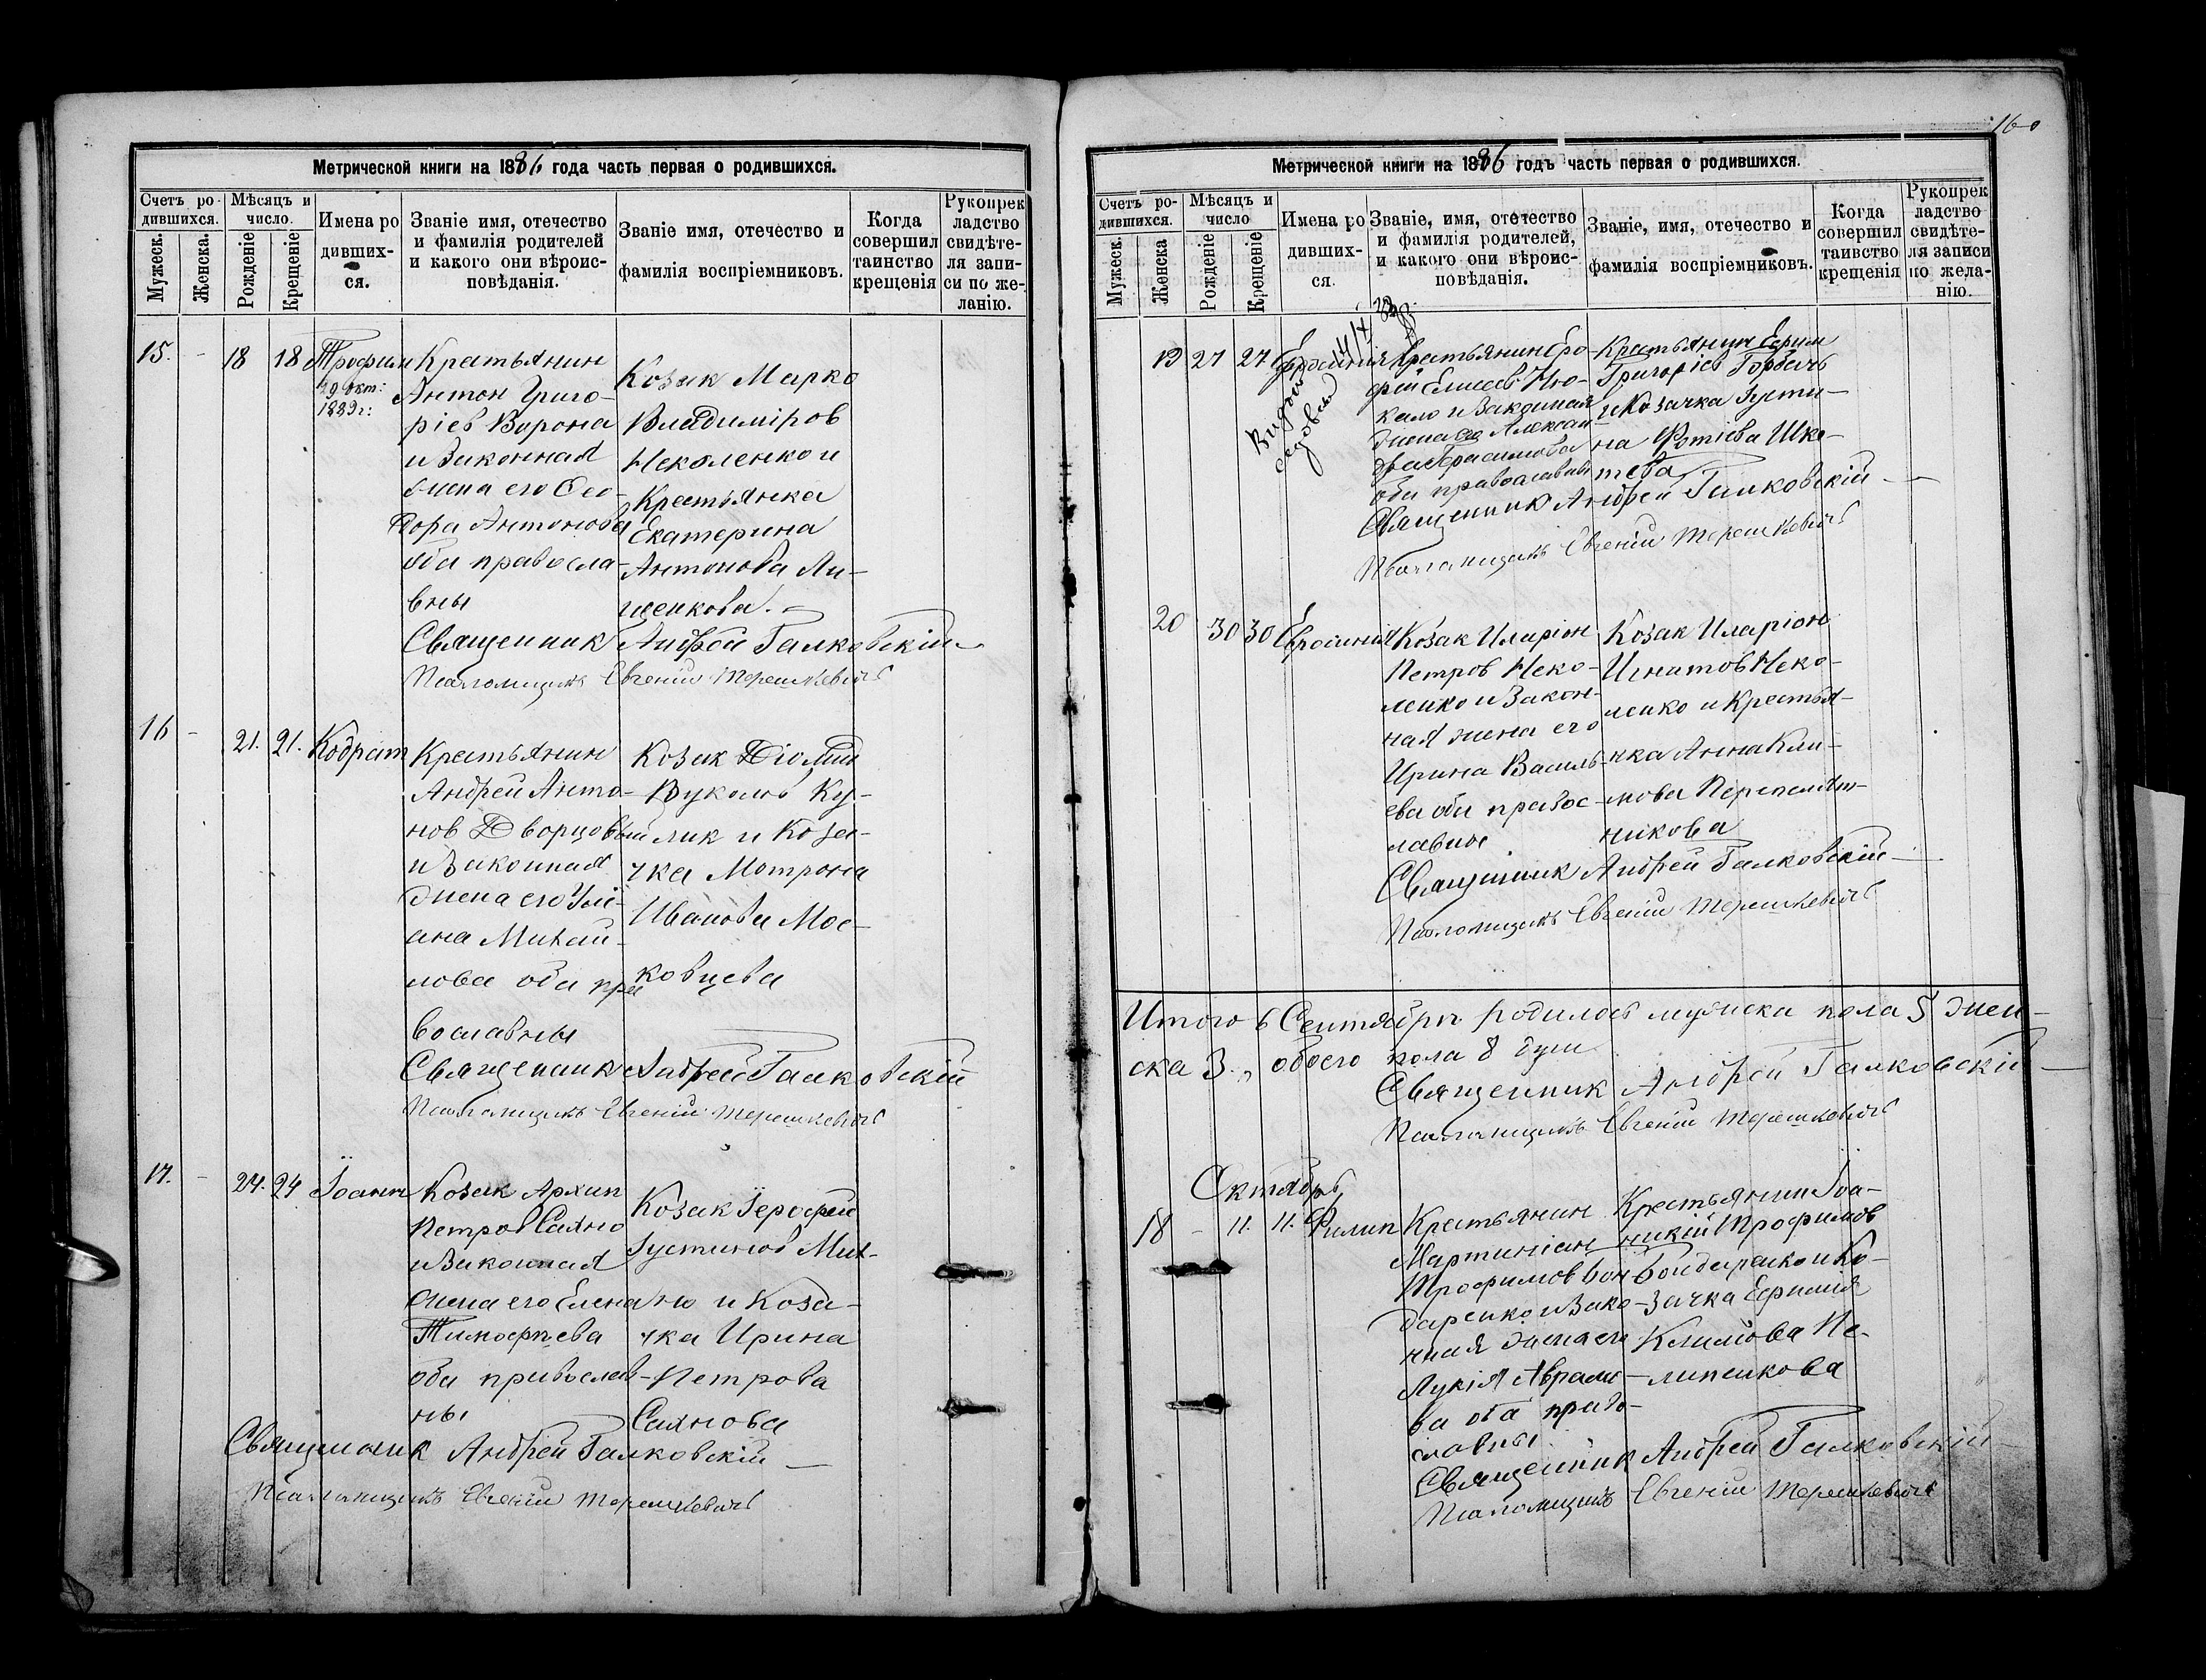 160
Метрической книги на 1886 года часть первая о родившихся.
Счетъ ро-
дившихся.
Мужеск.
Женска.
Мѣсяцъ и
число.
Рожденіе
Крещеніе
Имена ро
дивших-
ся.
Званіе имя, отечество
и фамилія родителей
и какого они вѣроис-
повѣданія.
Званіе имя, отечество и
фамилія воспріемниковъ.
Когда
совершил
таинство
крещенія
Рукопрек
ладство
свидѣте-
ля запи-
си по же-
ланію.
15. - 18 18 Трофим
29 окт:
1889 г:
Крестьянин
Антон Григо-
ріев Ворона
и Законная
жена его Фео-
дора Антонова
оба правосла-
вны
Козак Марко
Владиміров
Неколенко и
Крестьянка
Екатерина
Антонова Ли-
щенкова.
Священник Андрей Галковскій
Псаломщикъ Евгеній Терешкевичъ
16 - 21. 21. Кодрат
Крестьянин
Андрей Анто-
нов Дворцовый
и Законная
жена его Ули-
ана Михай-
лова оба пра
вославны
Козак Діомид
Вуколов Ку-
лик и Коза-
чка Мотрона
Иванова Мос-
ковцева
Священник Андрей Галковскій
Псаломщикъ Евгеній Терешкевичъ
17. - 24. 24 Іоанн
Козак Архип
Петров Сахно
и Законная
жена его Елена
Тимофеева
оба православ-
ны
Козак Іерофей
Іустинов Мих-
но и Коза-
чка Ирина
Петрова
Сахнова
Священник Андрей Галковскій
Псаломщикъ Евгеній Терешкевичъ
Метрической книги на 1886 годъ часть первая о родившихся.
Счетъ ро-
дившихся.
Мужеск.
Женска
Мѣсяцъ и
число
Рожденіе
Крещеніе
Имена ро
дивших-
ся.
Званіе, имя, отечество
и фамилія родителей,
и какого они вѣроис-
повѣданія.
Званіе, имя, отечество и
фамилія воспріемниковъ.
Когда
совершил
таивство
крещенія
Рукопрек
ладство
свидѣте-
ля записи
по жела-
нію.
19 27 27
Крестьянин Еро-
фей Елисеев
и Законная
жена его Алексан-
дра Герасимова
оба православны
Крестьянин Ефим
Григоріев Горбачъ
и Козачка Густи-
на Фотіева Шке-
тева
Священник Андрей Галковскій
Псаломщикъ Евгеній Терешкевичъ
20 30 30 Евфоинія
Козак Иларіон
Петров Неко-
ленко и Закон-
ная жена его
Ирина Василь-
ева оба правос-
лавные
Козак Иларіон
Игнатов Неко-
ленко и Крестья-
нка Анна Кли-
мова Перепелят-
никова
Священник Андрей Галковскій
Псаломщикъ Евгеній Терешкевичъ
Итого в Сентябрѣ родилось мужска пола 5 жен-
ска 3., обоего пола 8 душ
Священник Андрей Галковскій
Псаломщикъ Евгеній Терешкевичъ
Октябрь
18 - 11. 11. Филип
Крестьянин
Мартиніан
Трофимов Бон-
даренко и Зако-
нная жена его
Лукія Аврамо-
ва оба право-
славны
Крестьянин Іоа-
никій Трофимов
Бондаренко и Ко-
зачка Ефимія
Климова Пе-
липенкова
Священник Андрей Галковскій
Псаломщикъ Евгеній Терешкевичъ